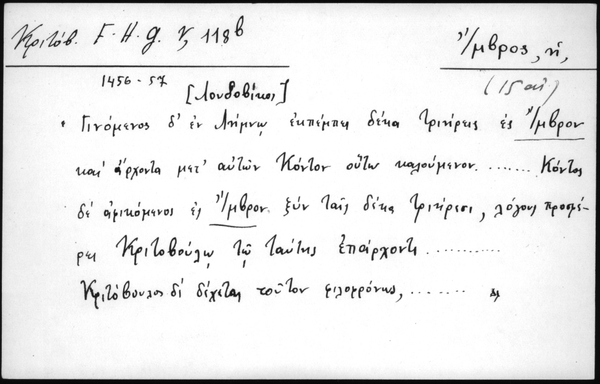 Κριτόβ. F.H.G. V, 118b
Ἴμβρος, ἡ,
1456-57
(15 αἰ)
[Λουδοβίκος]
Γινόμενος δ' ἐν Λήμνῳ ἐκπέμπει δέκα τριήρεις ἐς Ἴμβρον
καὶ ἄρχοντα μετ' αὐτῶν Κόντον οὕτω καλούμενον....... Κόντος
δὲ ἀφικόμενος ἐς Ἴμβρον ξὺν ταῖς δέκα τριήρεσι, λόγους προσφέ-
ρει Κριτοβούλῳ τῷ ταύτης ἐπάρχοντι ...........
Κριτόβουλος δὲ δέχεται τοῦτον φιλοφρόνως, .......